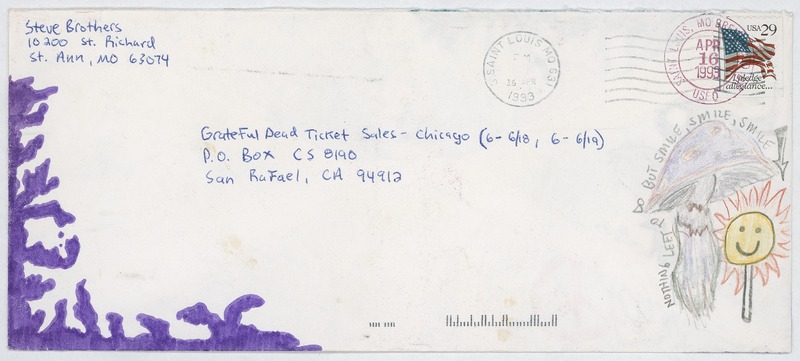 Steve Brothers
10200 St. Richard
St. Ann, MO 63074
SAINT LOUIS MO 631
PM
16 APR
1993
SAINT LOUIS, MO
APR
16
1993
USPO
USA 29
I pledge
allegiance...
Grateful Dead Ticket Sales - Chicago (6 - 6/18, 6 - 6/19)
P.O. Box CS 8190
San Rafael, CA 94912
NOTHING LEFT TO DO BUT SMILE, SMILE, SMILE